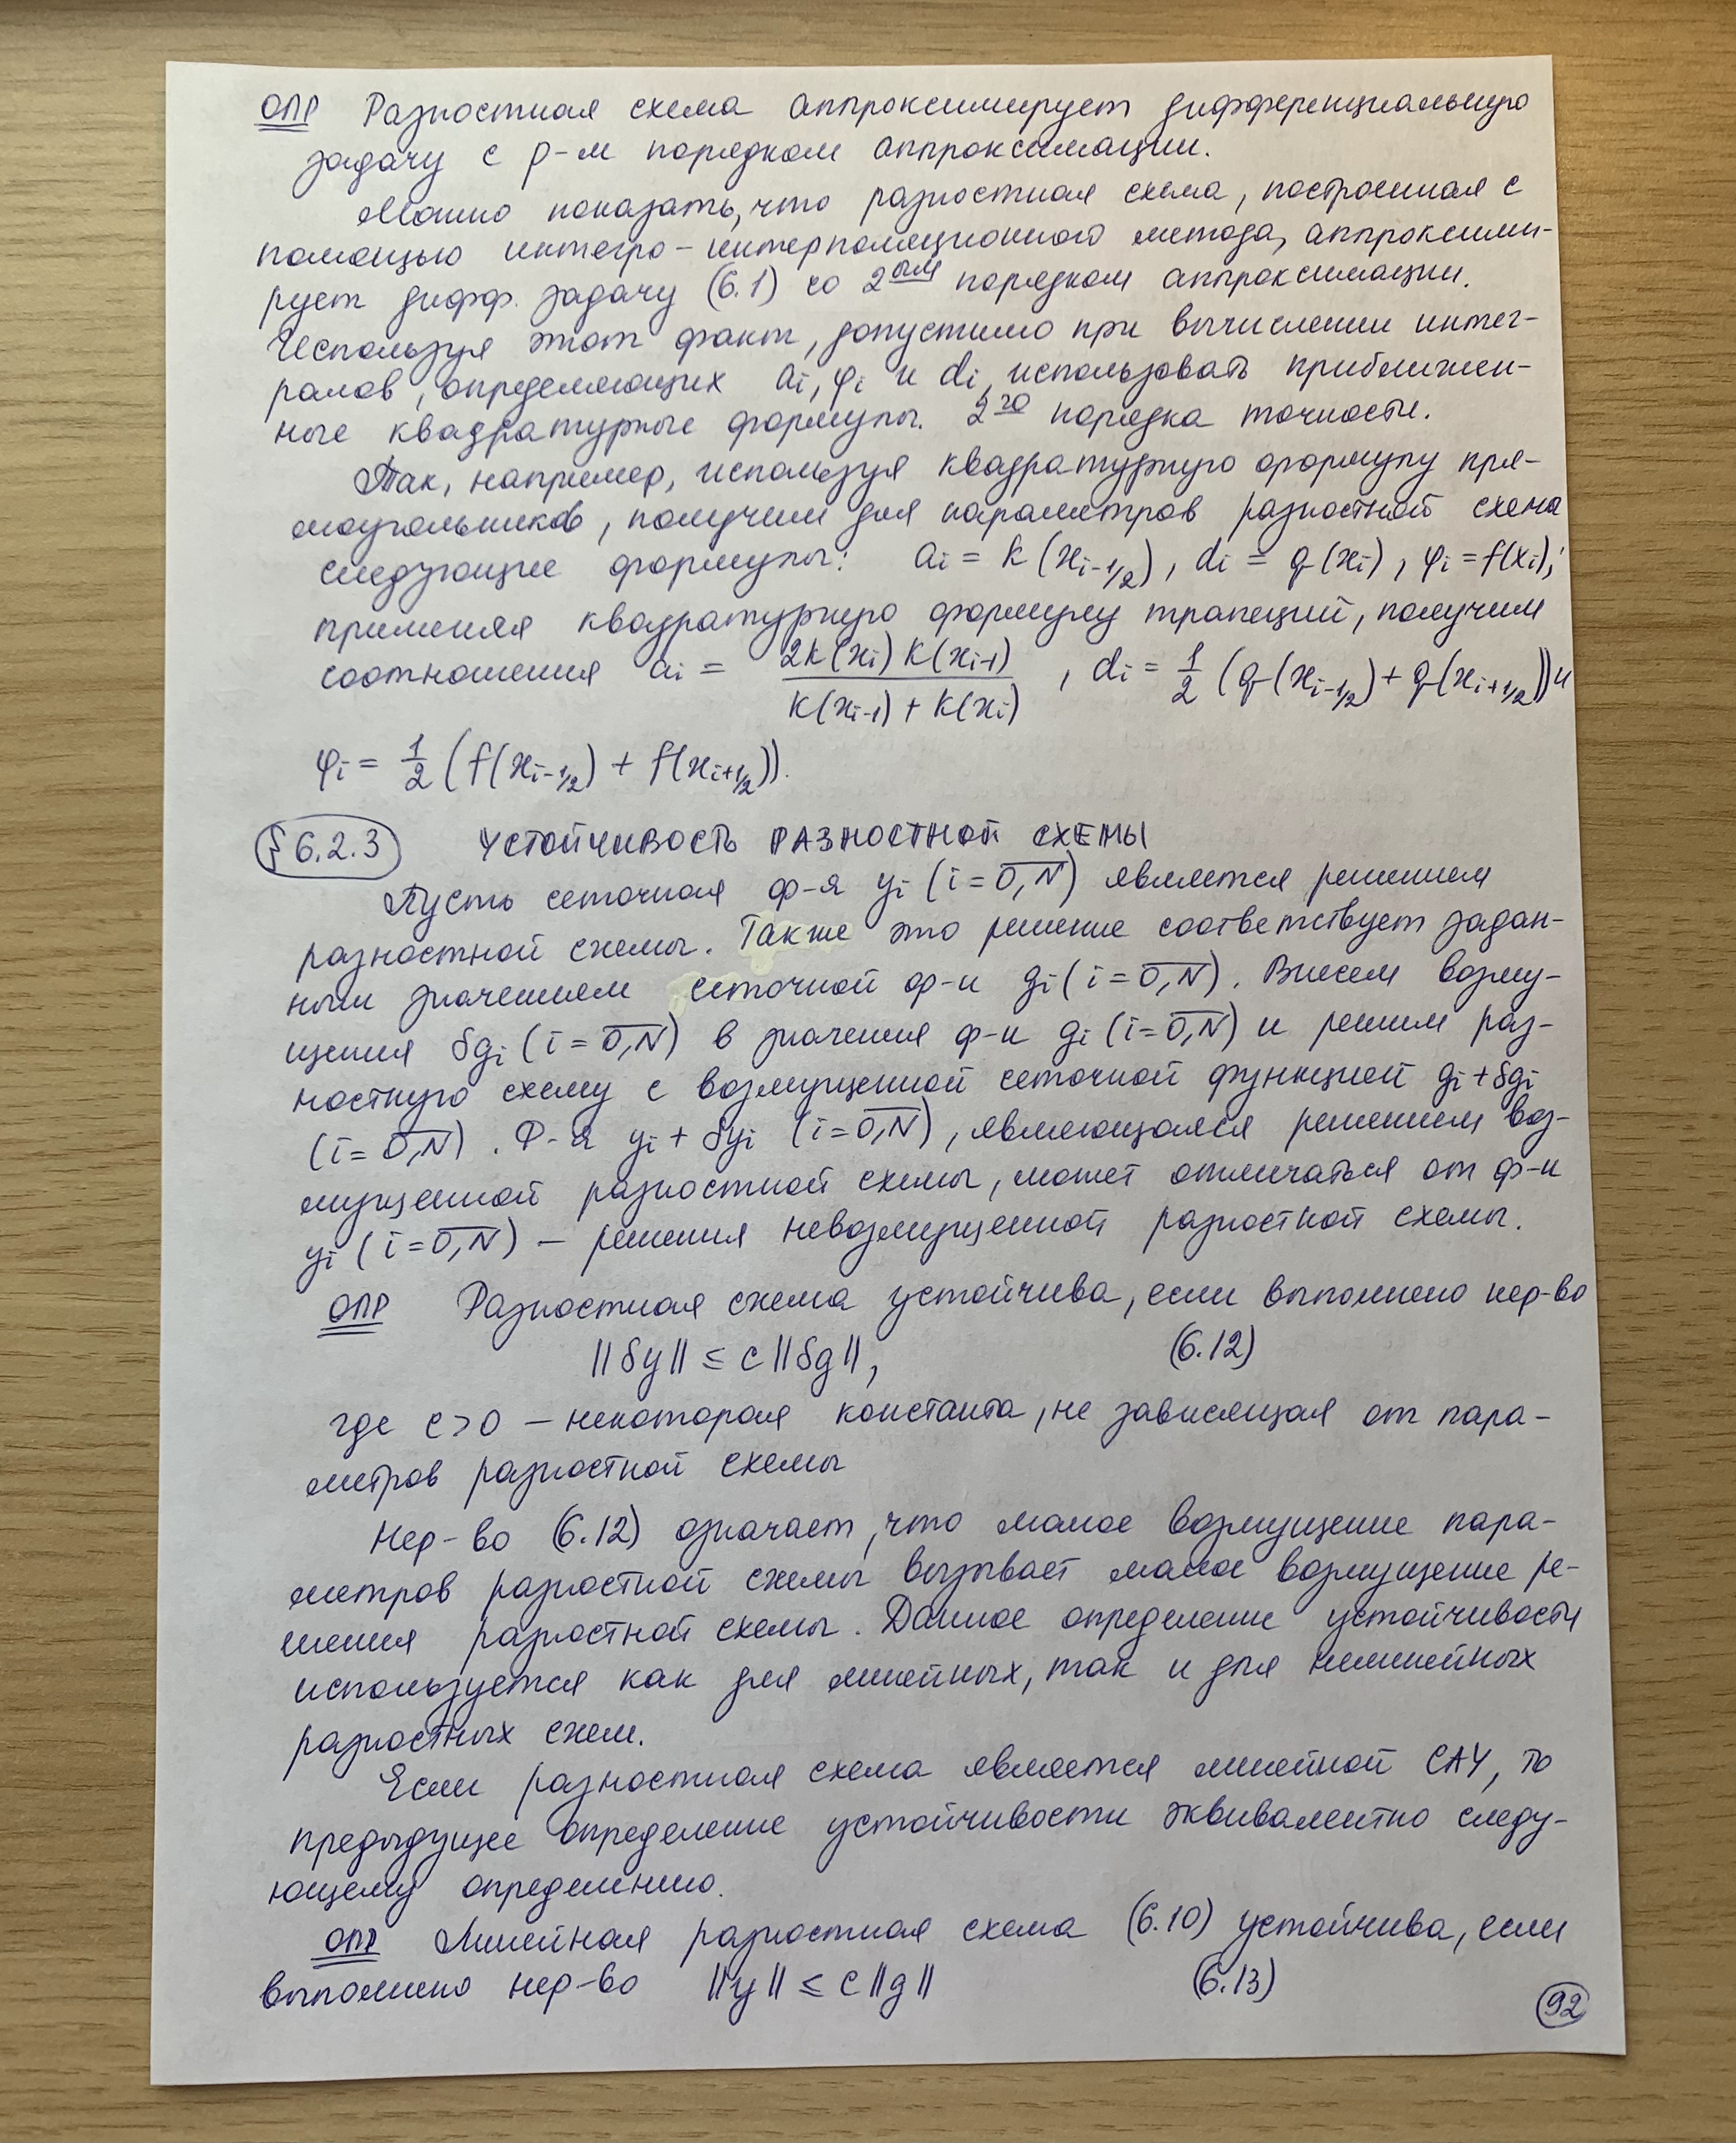 ОПР Разностная схема аппроксимирует дифференциальную
задачу с р-м порядком аппроксимации.
Можно показать, что разностная схема, построенная с
помощью интегро-интерполяционного метода, аппроксими-
рует дифф. задачу (6.1) со 2ым порядком аппроксимации.
Используя этот факт, допустимо при вычислении интег-
ралов, определяющих ai, φi и di, использовать приближен-
ные квадратурные формулы. 2го порядка точности.
Так, например, используя квадратурную формулу пря-
моугольников, получим для параметров разностной схема
следующие формулы: ai = k(xi-1/2), di = q(xi), φi = f(xi);
применяя квадратурную формулу трапеций, получим
соотношения ai = 2k(xi) k(xi-1) / k(xi-1) + k(xi), di = 1/2 (q(xi-1/2) + q(xi+1/2)) и
φi = 1/2 (f(xi-1/2) + f(xi+1/2)).
§ 6.2.3 УСТОЙЧИВОСТЬ РАЗНОСТНОЙ СХЕМЫ
Пусть сеточная ф-я yi (i = 0,N) является решением
разностной схемы. Также это решение соответствует задан-
ным значением сеточной ф-и gi (i = 0,N). Внесем возму-
щения δgi (i = 0,N) в значения ф-и gi (i = 0,N) и решим раз-
ностную схему с возмущенной сеточной функцией gi + δgi
(i = 0,N). Ф-я yi + δyi (i = 0,N), являющаяся решением воз-
мущенной разностной схемы, может отличаться от ф-и
yi (i = 0,N) – решения невозмущенной разностной схемы.
ОПР Разностная схема устойчива, если выполнено нер-во
||δy|| ≤ c||δg||, (6.12)
где c>0 – некоторая константа, не зависящая от пара-
метров разностной схемы
Нер-во (6.12) означает, что малое возмущение пара-
метров разностной схемы вызывает малое возмущение ре-
шения разностной схемы. Данное определение устойчивости
используется как для линейных, так и для нелинейных
разностных схем.
Если разностная схема является линейной САУ, то
предыдущее определение устойчивости эквивалентно следу-
ющему определению.
ОПР Линейная разностная схема (6.10) устойчива, если
выполнено нер-во ||y|| ≤ c||g|| (6.13)
92